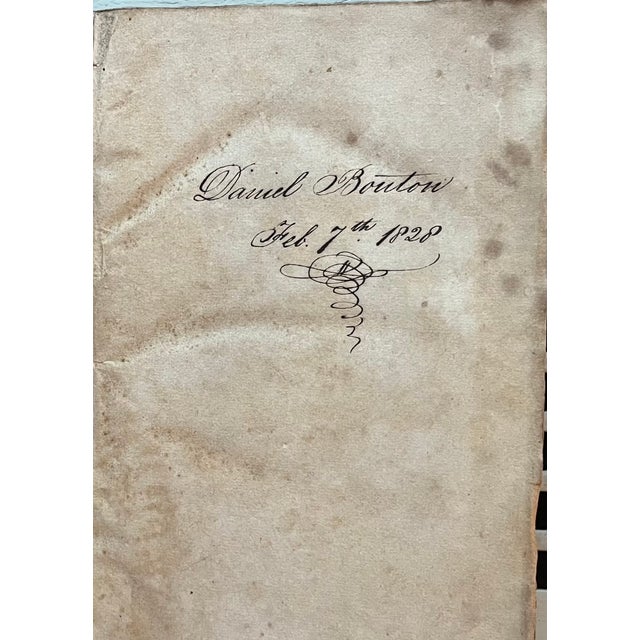 Daniel Bouton
Feb. 7th. 1828